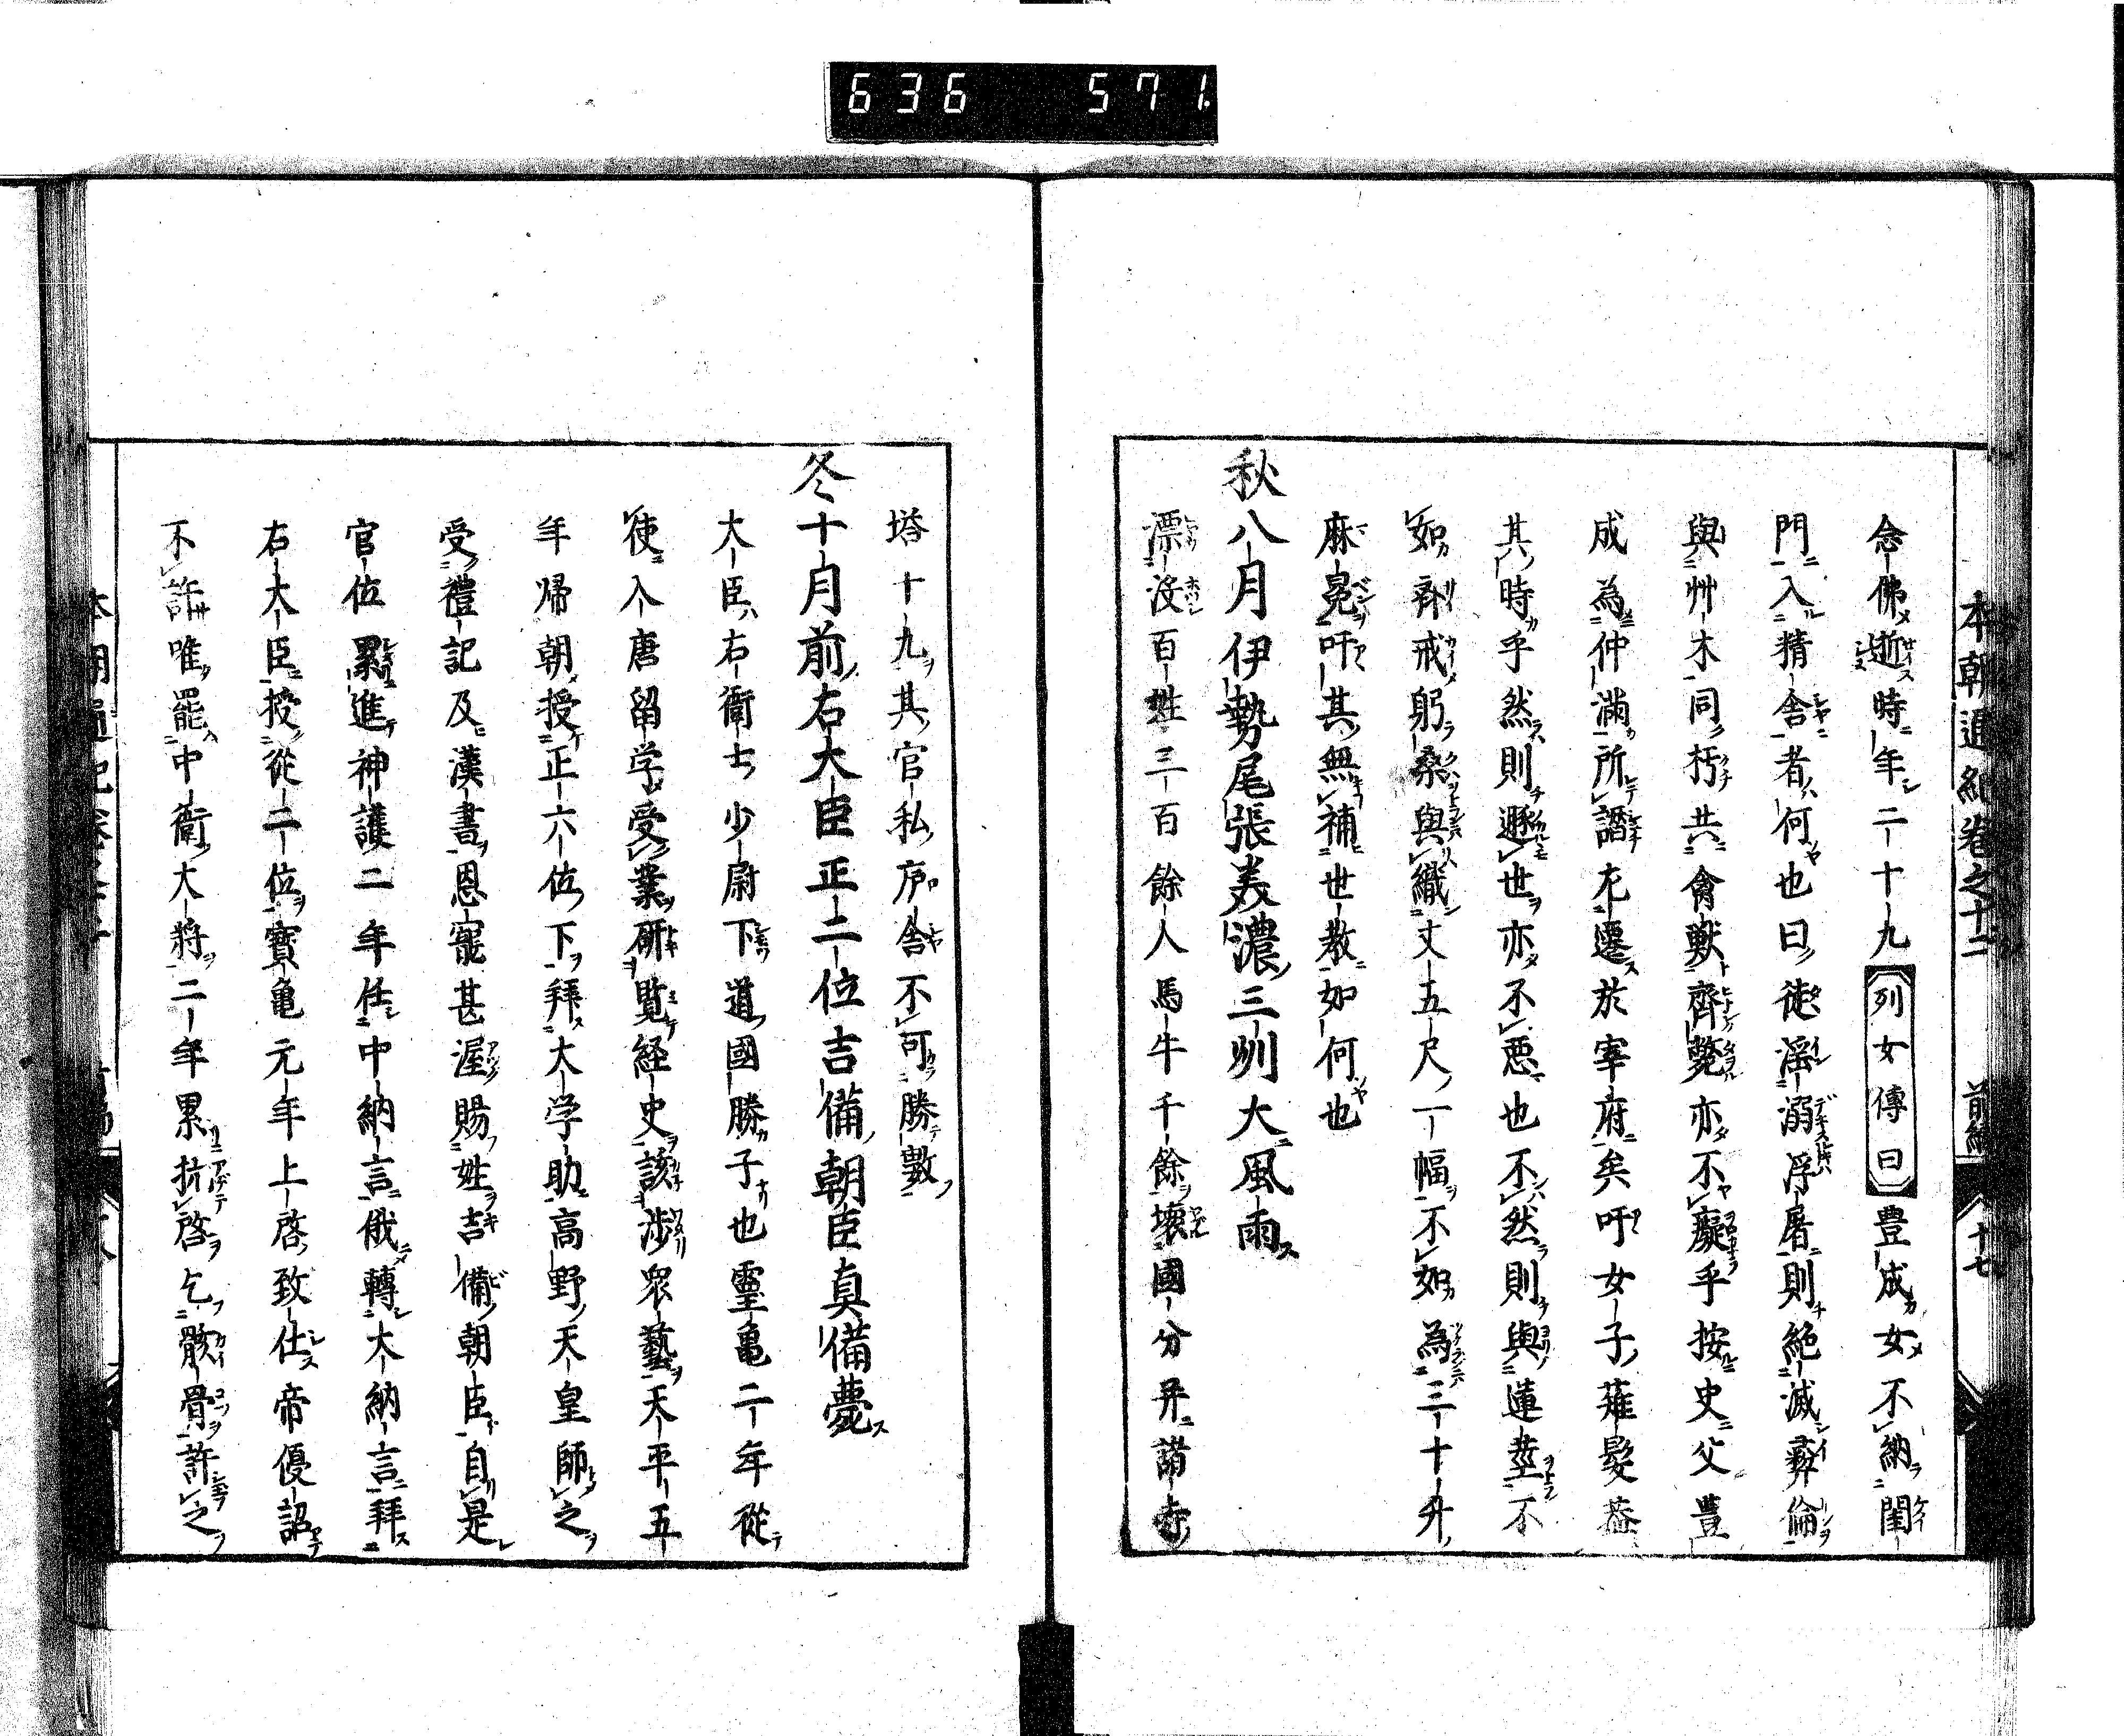 636 571
本朝通紀卷之十二 前編 十七
念佛逝時年二十九列女傳曰豊成女不納閨
門入精舍者何也曰徒滛溺浮屠則絶滅彛倫
與艸木同朽共禽獸齊斃亦不癡乎按史父豊
成為仲滿所譖左遷於宰府矣吁女子薙髮蓋
其時乎然則遯世亦不悪也不然則與蓮莖不
如齋戒躬桑與織丈五尺一幅不如為三十升
麻冕吁其無補世教如何也
秋八月伊勢尾張美濃三州大風雨
漂没百姓三百餘人馬牛千餘壊國分并諸寺
塔十九其官私庐舎不可勝數
冬十月前右大臣正二位吉備朝臣真備薨
大臣右衛士少尉下道國勝子也靈亀二年從
使入唐留学受業研覧経史該渉衆藝天平五
年帰朝授正六位下拜大学助高野天皇師之
受禮記及漢書恩寵甚渥賜姓吉備朝臣自是
官位累進神護二年任中納言俄轉大納言拜
右大臣授從二位寳亀元年上啓致仕帝優詔
不許唯罷中衞大将二年累抗啓乞骸骨許之